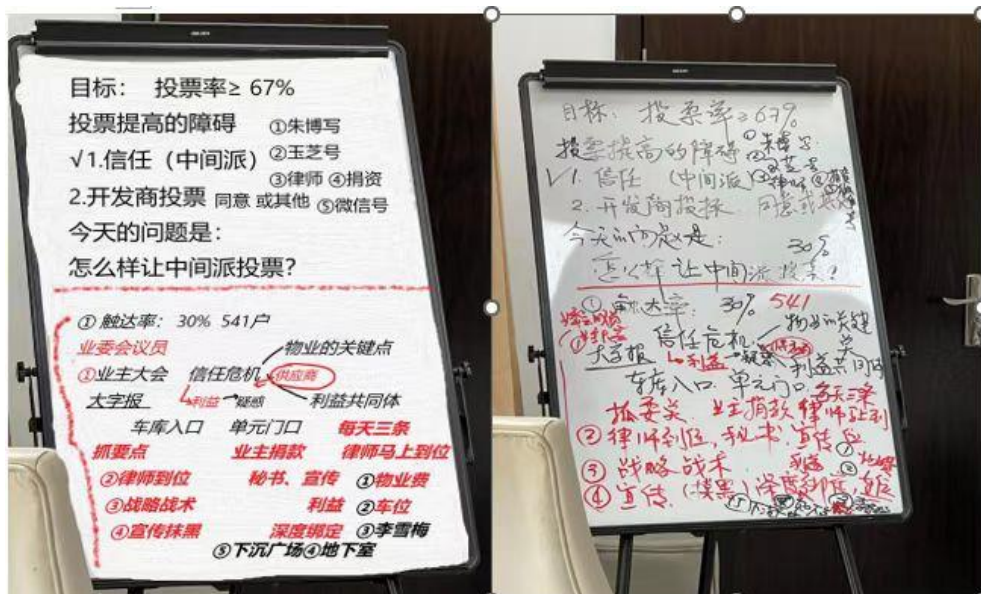 目标： 投票率≥ 67%
投票提高的障碍 ①朱博写
√1.信任（中间派） ②玉芝号
③律师 ④捐资
2.开发商投票 同意 或其他 ⑤微信号
今天的问题是：
怎么样让中间派投票？
①触达率：30% 541户
业委会议员 物业的关键点
①业主大会 信任危机 供应商
大字报 利益 疑惑 利益共同体
车库入口 单元门口 每天三条
抓要点 业主捐款 律师马上到位
②律师到位 秘书、宣传 ①物业费
③战略战术 利益 ②车位
④宣传抹黑 深度绑定 ③李雪梅
⑤下沉广场④地下室
目标： 投票率≥67%
投票提高的障碍
√1. 信任 （中间派）
2. 开发商投标 同意或其他
今天的问题是： 30%
怎么样让中间派投票？
①触达率： 30% 541
信任危机 物业的关键
大字报 利益 利益共同体
车库入口 单元门口 每天三条
抓要点 业主捐款 律师马上到
②律师到位，秘书，宣传
③战略战术 利益
④宣传（抹黑）深度绑定